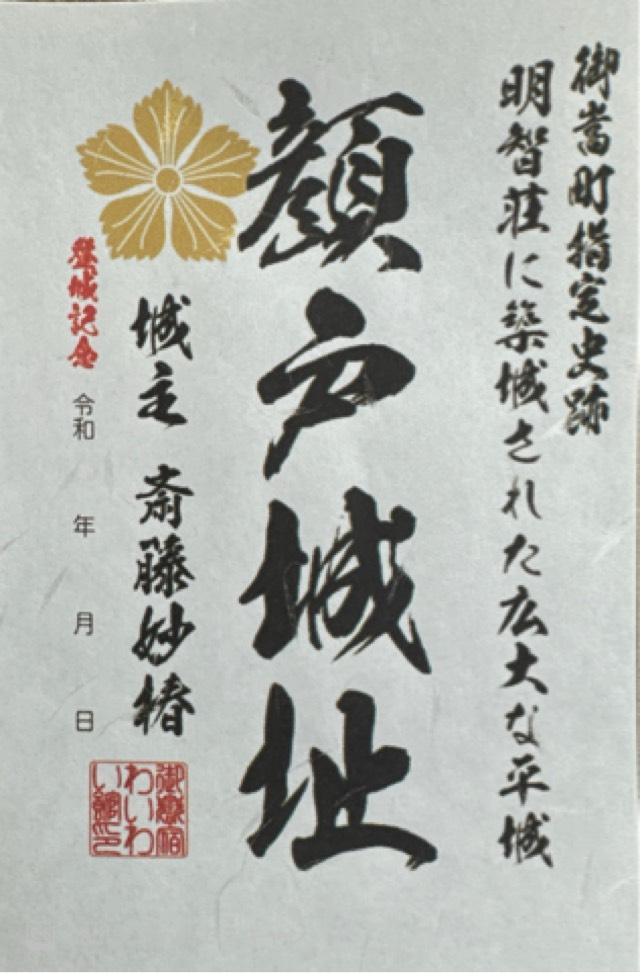 御嵩町指定史跡
明智荘に築城された広大な平城
顔戸城址
城主 斎藤妙椿
登城記念
令和 年 月 日
御嶽宿
わいわ
い館之印